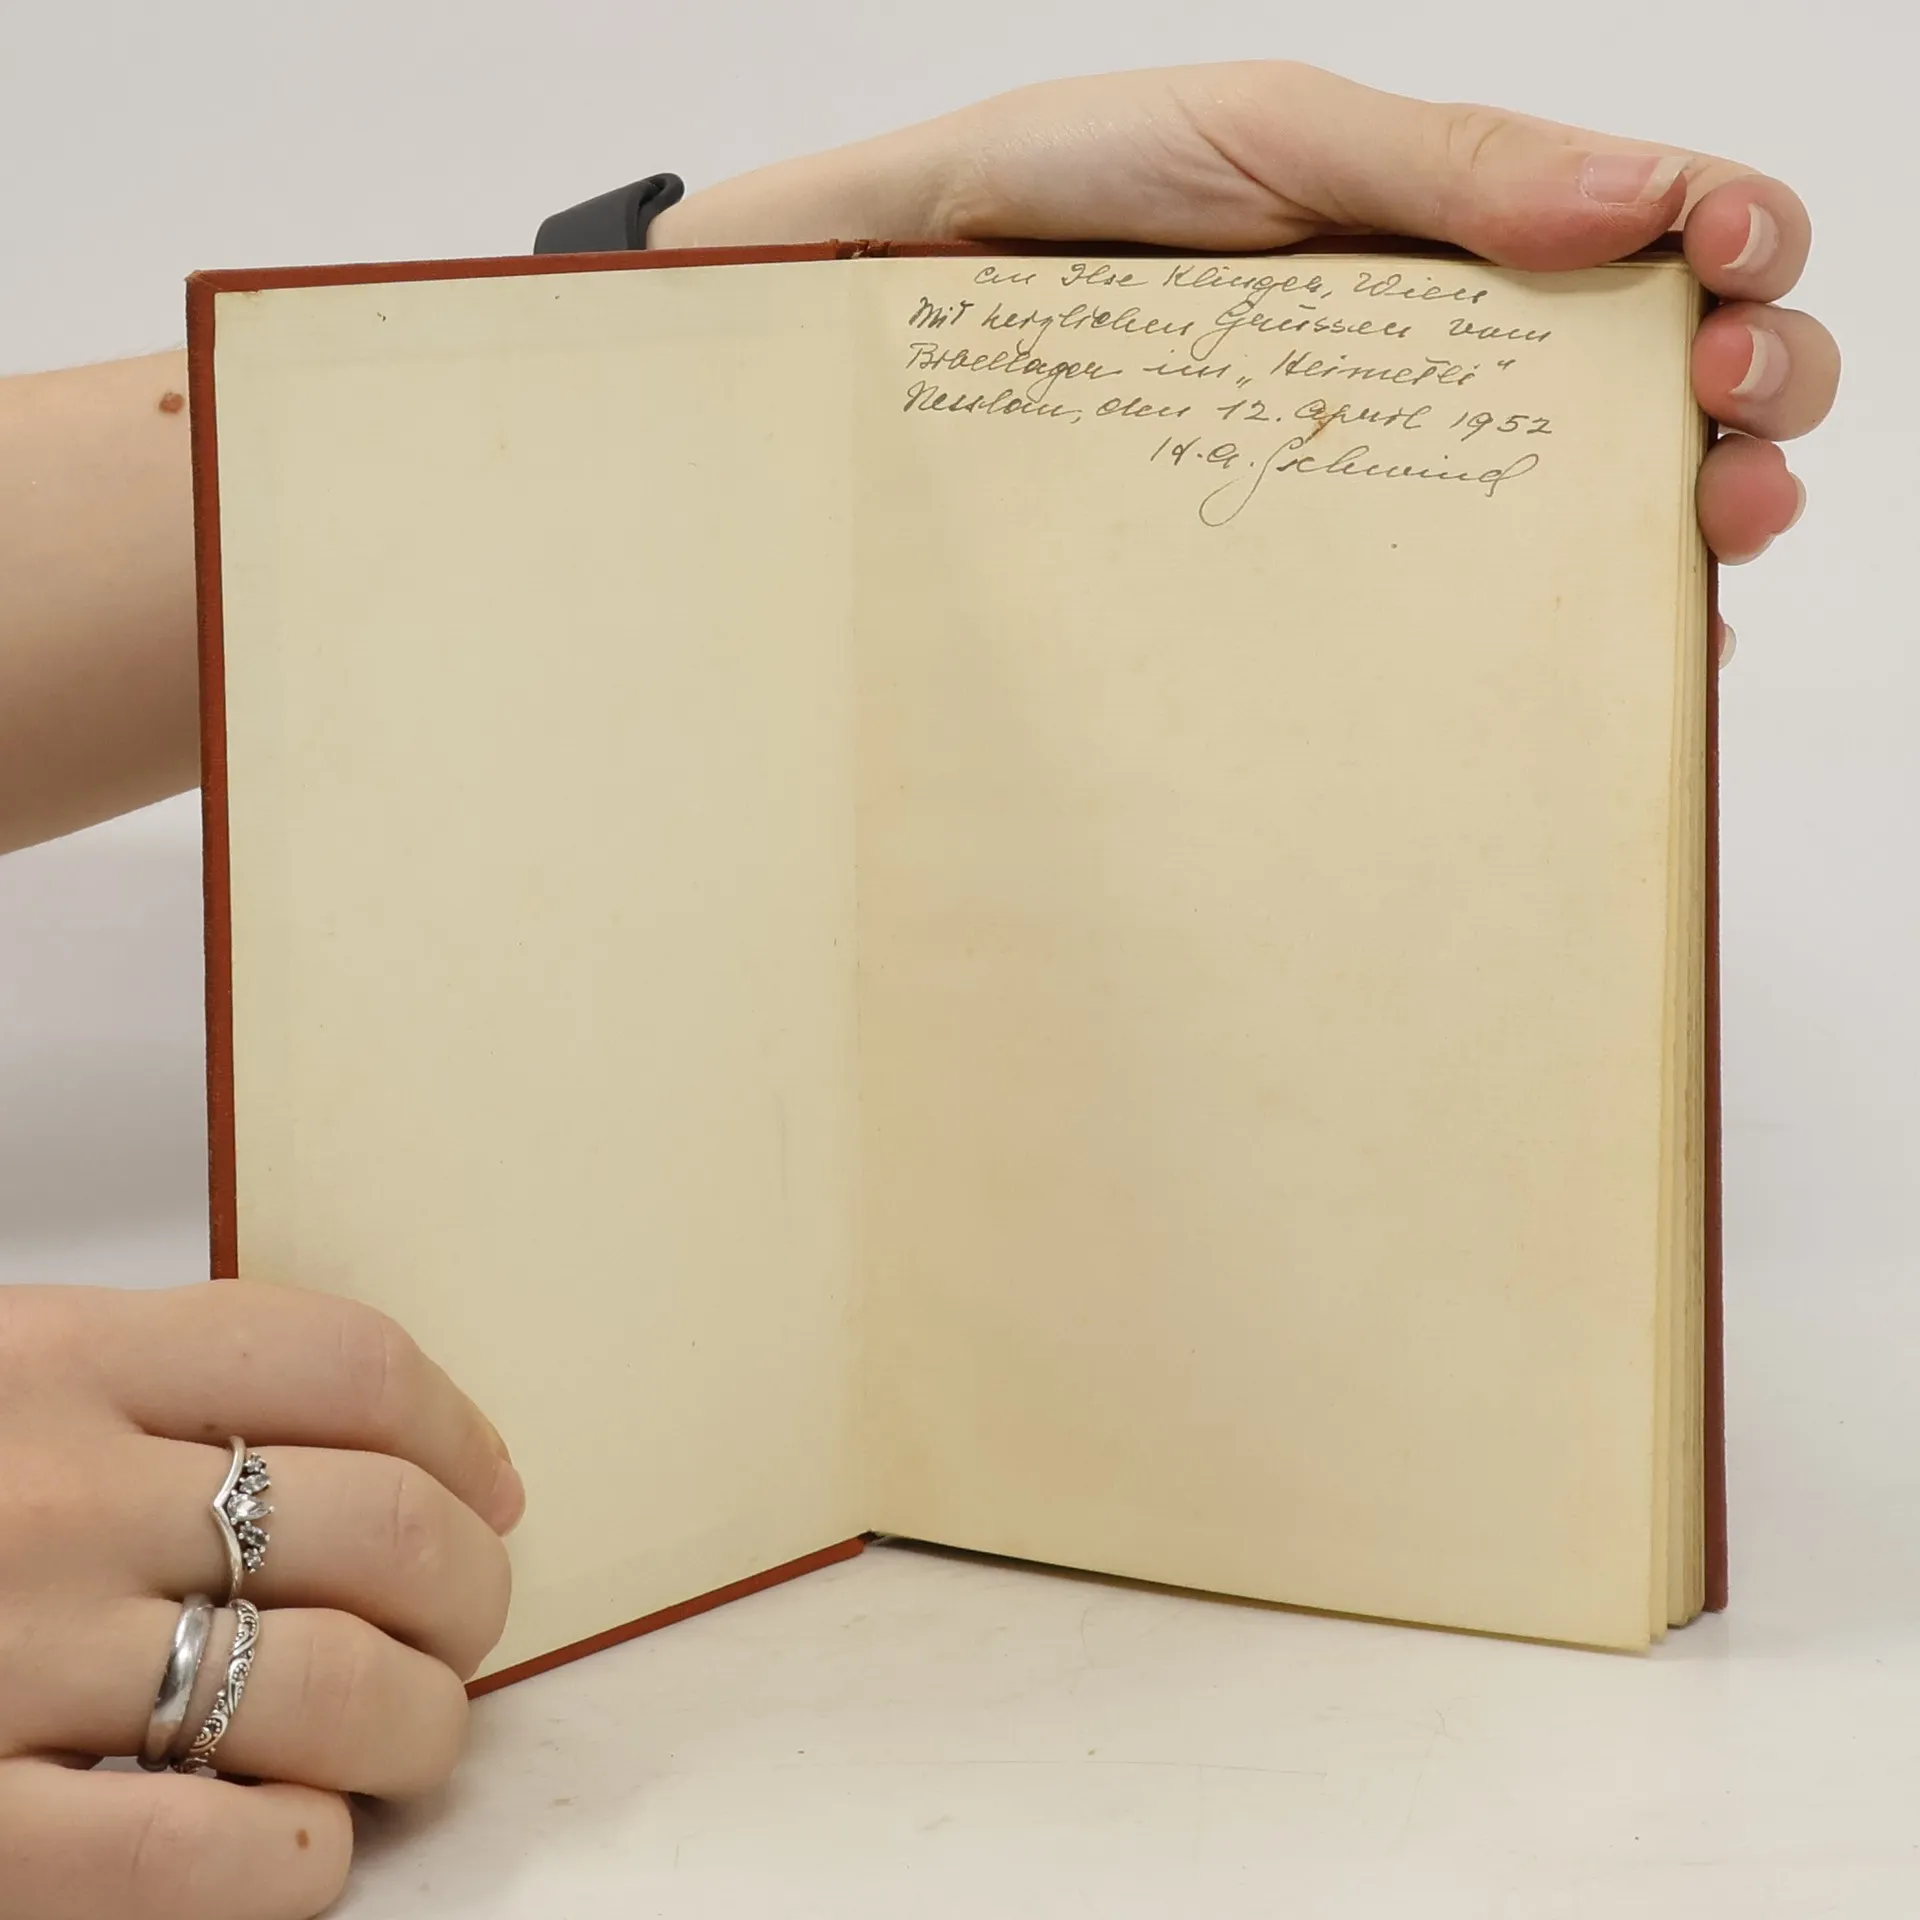 an Ilse Klinger, Wien
Mit herzlichen Grüssen vom
Bibellager im „Heimetli"
Nesslau, den 12. April 1952
H. A. Gschwind